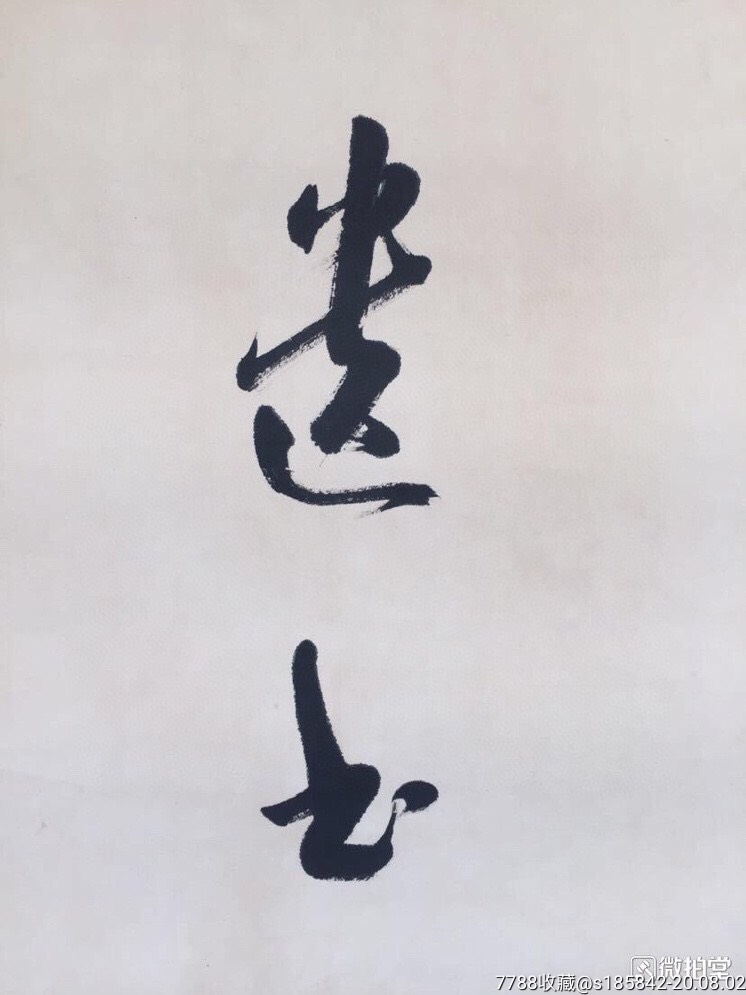 遺
微拍堂
7788收藏@s185842-20.08.02